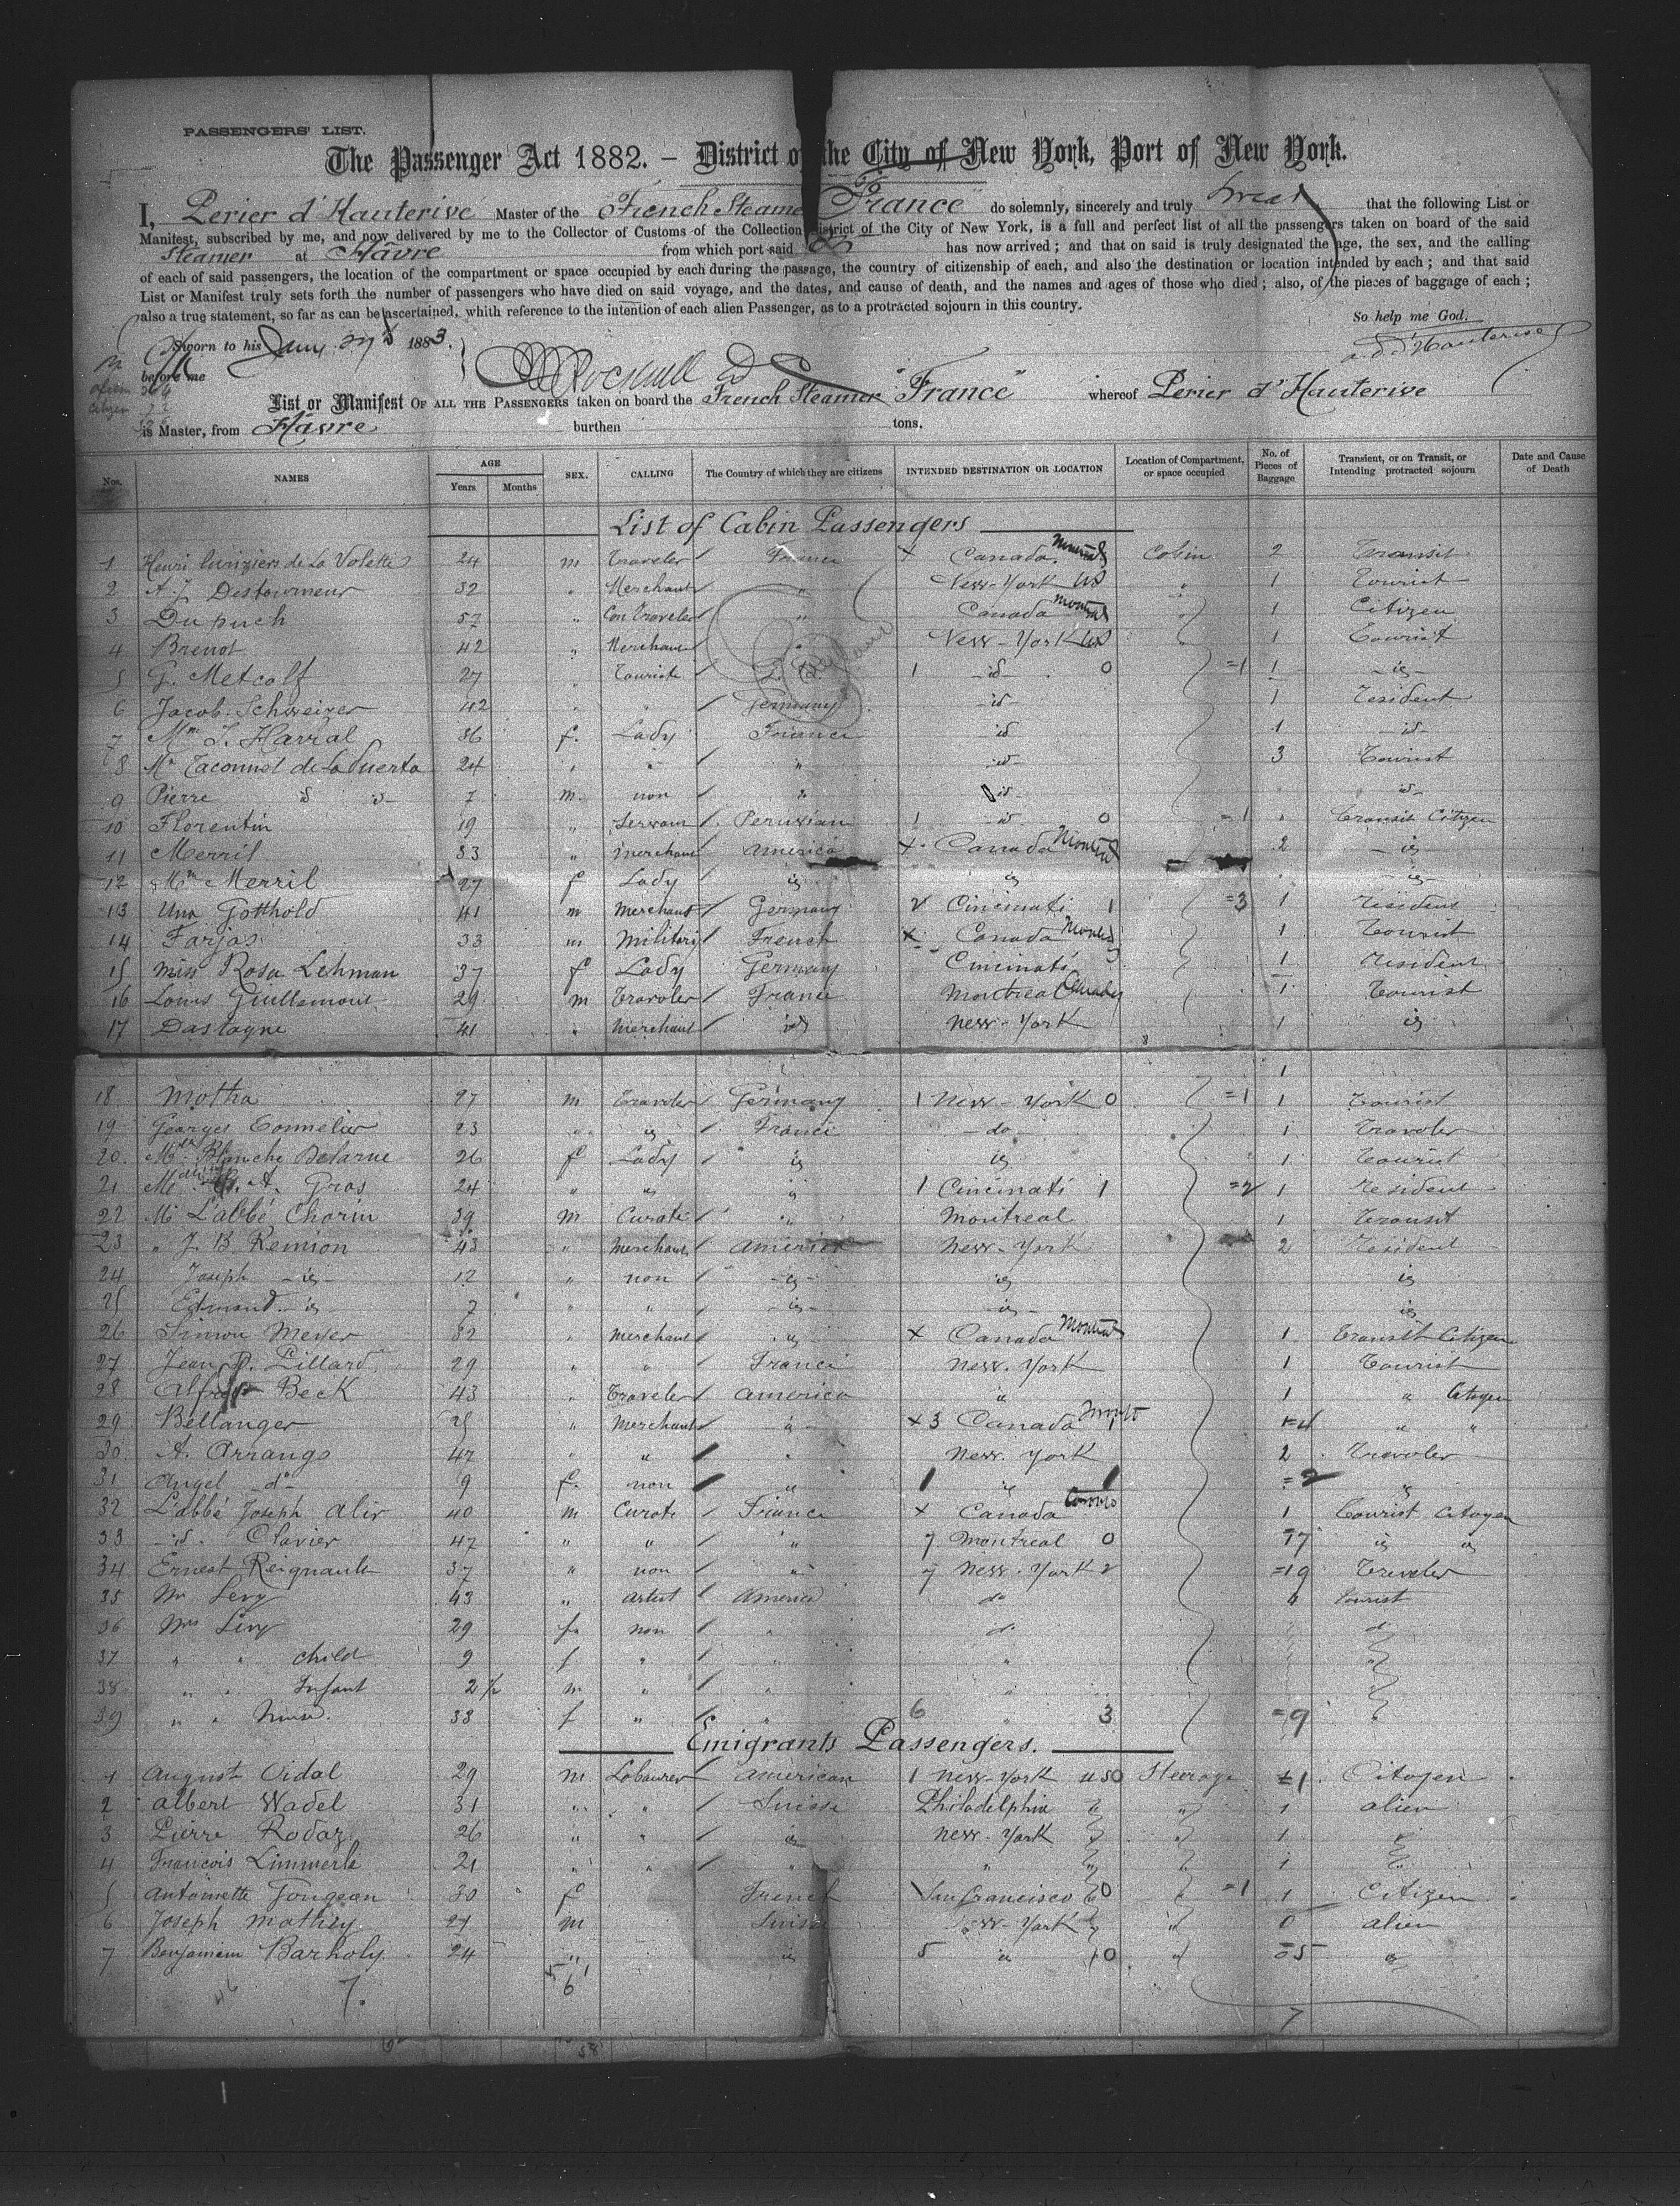 PASSENGERS' LIST.
The Passenger Act 1882. – District of the City of New York, Port of New York.
I, Perier d'Hauterive Master of the French Steamer France do solemnly, sincerely and truly swear that the following List or
Manifest, subscribed by me, and now delivered by me to the Collector of Customs of the Collection District of the City of New York, is a full and perfect list of all the passengers taken on board of the said
Steamer at Hâvre from which port said has now arrived; and that on said is truly designated the age, the sex, and the calling
of each of said passengers, the location of the compartment or space occupied by each during the passage, the country of citizenship of each, and also the destination or location intended by each; and that said
List or Manifest truly sets forth the number of passengers who have died on said voyage, and the dates, and cause of death, and the names and ages of those who died; also, of the pieces of baggage of each;
also a true statement, so far as can be ascertained, whith reference to the intention of each alien Passenger, as to a protracted sojourn in this country.
So help me God.
Sworn to his Jany. 1883.
a. d. d'Hauterive
before me
List or Manifest OF ALL THE PASSENGERS taken on board the French Steamer "France" whereof Perier d'Hauterive
is Master, from Hâvre burthen tons.
Nos. NAMES AGE Years Months SEX. CALLING The Country of which they are citizens INTENDED DESTINATION OR LOCATION Location of Compartment, or space occupied No. of Pieces of Baggage Transient, or on Transit, or Intending protracted sojourn Date and Cause of Death
List of Cabin Passengers
1 Henri de La Valette 24 m Traveler France + Canada Montreal Cabin 2 Transit
2 A. J. Destourneur 32 " Merchant " New-York US " 1 Tourist
3 Dupuch 57 " Com Traveler " Canada Montreal " 1 Citizen
4 Brenot 42 " Merchant " New-York US " 1 Tourist
5 G. Metcalf 27 " Touriste 1 -id- 0 =1 1 -id-
6 Jacob Schweizer 42 " " Germany -id- 1 resident
7 Mm J. Harral 36 f. Lady France -id- 1 -id-
8 Me Taconnet de La Puerta 24 " " " -id- 3 Tourist
9 Pierre id id- 7 m. non " id- -id-
10 Florentin 19 " Servant Peruvian 1 -id 0 =1 " Transit Citizen
11 Merril 33 " Merchant America + Canada Montreal 2 -id-
12 Mm Merril 27 f Lady id id " -id-
13 Gotthold 41 m Merchant Germany 2 Cincinati 1 =3 1 resident
14 Farjas 33 m Military French + Canada 1 Tourist
15 Miss Rosa Lehman 37 f Lady Germany Cincinati 1 resident
16 Louis Guillemont 29 m Traveler France Montreal Canada 1 Tourist
17 Dastagne 41 " Merchant id New-York 1 id
1
18 Motha 27 m Traveler Germany 1 New-York 0 =1 1 Tourist
19 Georges Tonnelier 23 " id France -do- 1 Traveler
20 Melle Blanche Delarue 26 f Lady id id 1 Tourist
21 A. Gros 24 " " " 1 Cincinati 1 =2 1 resident
22 Mr L'abbé Chorin 39 m Curate " Montreal 1 Transit
23 " J. B. Remion 43 " Merchant America New-York 2 resident
24 Joseph -id- 12 " non -id- id id
25 Edmond -id- 7 " " -id- -id- id
26 Simon Meyer 32 " Merchant " id + Canada Montreal 1 Transit Citizen
27 Jean P. Pillard 29 " " France New-York 1 Tourist
28 Alfred Beck 43 " Traveler America " 1 " Citizen
29 Bellanger " Merchant -id- + 3 Canada 1 =4 " "
30 A. Arrango 47 " " " New-York 2 Traveler
31 Angel -do- 9 f. non " 1 id 1 =2 "
32 L'abbé Joseph Alir 40 m Curate France + Canada 1 Tourist Citoyen
33 -id. Clavier 47 " " " 7 Montreal 0 =7 id id
34 Ernest Reignault 37 " non " 7 New-York 2 =19 Traveler
35 Mr Levy 43 " artist America do 4 Tourist
36 Mrs Levy 29 f. non " do do
37 " " child 9 f " " " "
38 " " Infant 2 1/2 m " " " "
39 " " Nurse. 33 f " " 6 " 3 =9 "
Emigrants Passengers.
1 August Vidal 29 m. Labourer American 1 New-York US 0 Steerage =1 Citoyen
2 Albert Wadel 31 " " Suisse Philadelphia " 1 alien
3 Pierre Rodaz 26 " " id New-York " 1 "
4 Francois Limmerle 21 " " " " " 1 "
5 Antoinette Gougean 30 f French San francisco 0 " =1 1 Citizen
6 Joseph Mathey 27 m Suisse New-York " 0 alien
7 Benjamin Barholy 24 " id 5 " 0 " =5 "
7.
6